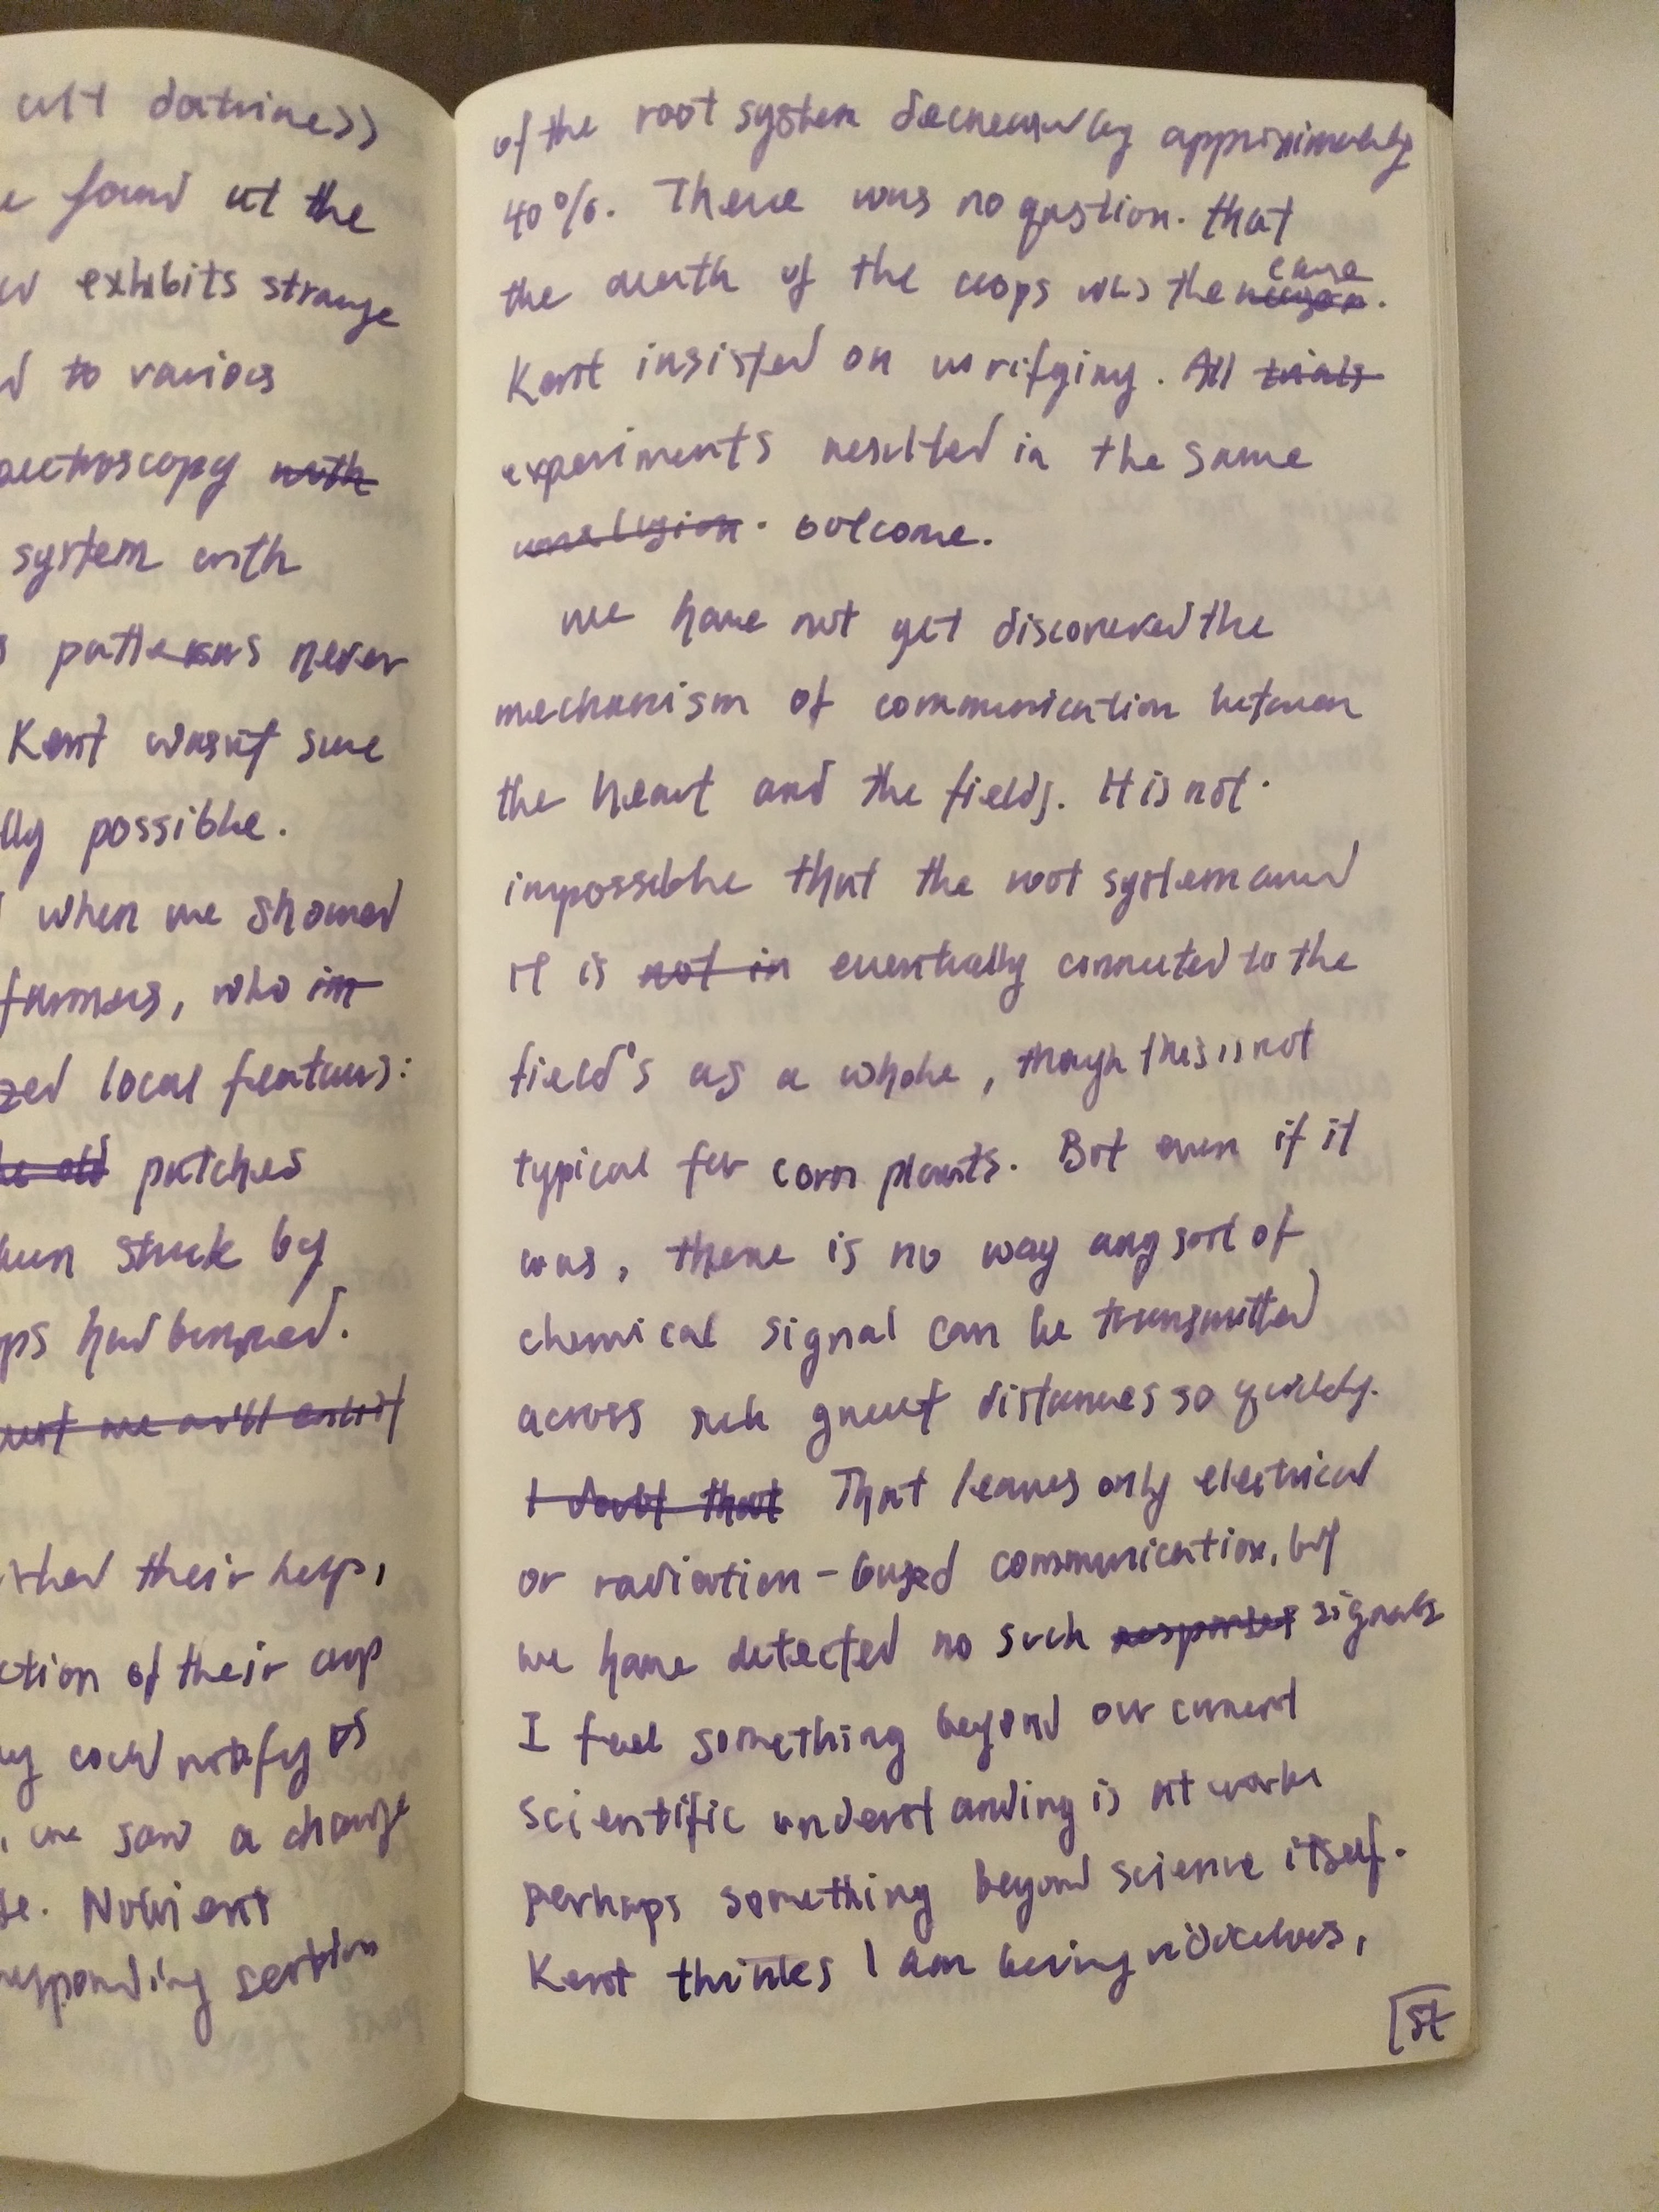 cult doctrine>>
found at the
exhibits strange
to various
spectroscopy with
system with
patterns never
Kent wasn't sure
lly possible.
when we showed
farmers, who in
zed local features:
he old patches
been struck by
ps had burned.
their help,
ction of their crop
could notify us
, we saw a change
se. Nutrient
responding section
of the root system decreased by approximately
40%. There was no qustion. that
the death of the crops was the reason cause.
Kent insisted on verifying. All trials
experiments resulted in the same
conclusion. outcome.
we have not yet discovered the
mechanism of communication between
the heart and the fields. It is not.
impossible that the root system around
it is not in eventually connected to the
field's as a whole, though this is not
typical for corn plants. But even if it
was, there is no way any sort of
chemical signal can be transmitted
across such great distances so quickly.
I doubt that That leaves only electrical
or radiation-based communication, but
we have detected no such responses signals
I feel something beyond our current
scientific understanding is at work
perhaps something beyond science itself.
Kent thinks I am being ridiculous,